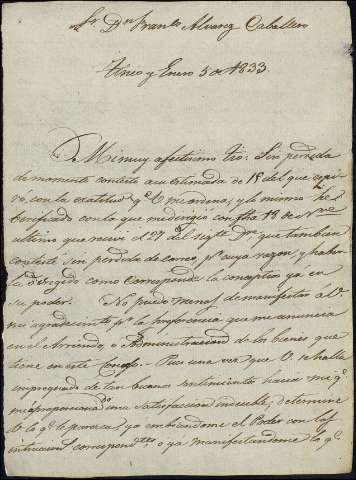 Sr. Dn. Franco Alvarez Caballero
Tineo y Enero 5 de 1833.
Mi muy afectisimo Tio: Sin perdida
de momento contesto a su estimada de 18 del que espi-
ró, con la exatitud qe. V. me ordena; y lo mismo he
berificado con la que me dirigio con fha 18 de Nvre
ultimo que recivi el 27 del sigte Dre que tambien
contesté sin perdida de correo, pr. cuya razon, y haber
la dirigido como corresponde la conceptuo ya en
su poder. No puedo menos de manifestar á V.
mi agradecimto pr. la preferencia que me anuncia
en el Arriendo, o Administracion de los bienes que
tiene en este Consejo. Pues una vez que V. se halla
impregnado de tan buenos sentimientos hacia mi qe.
me proporcionan una satisfaccion indecible, determine
V. lo qe. le paresca, ya embiandome el Poder con las
intrucciones correspondtes o ya manifestandome lo qe.